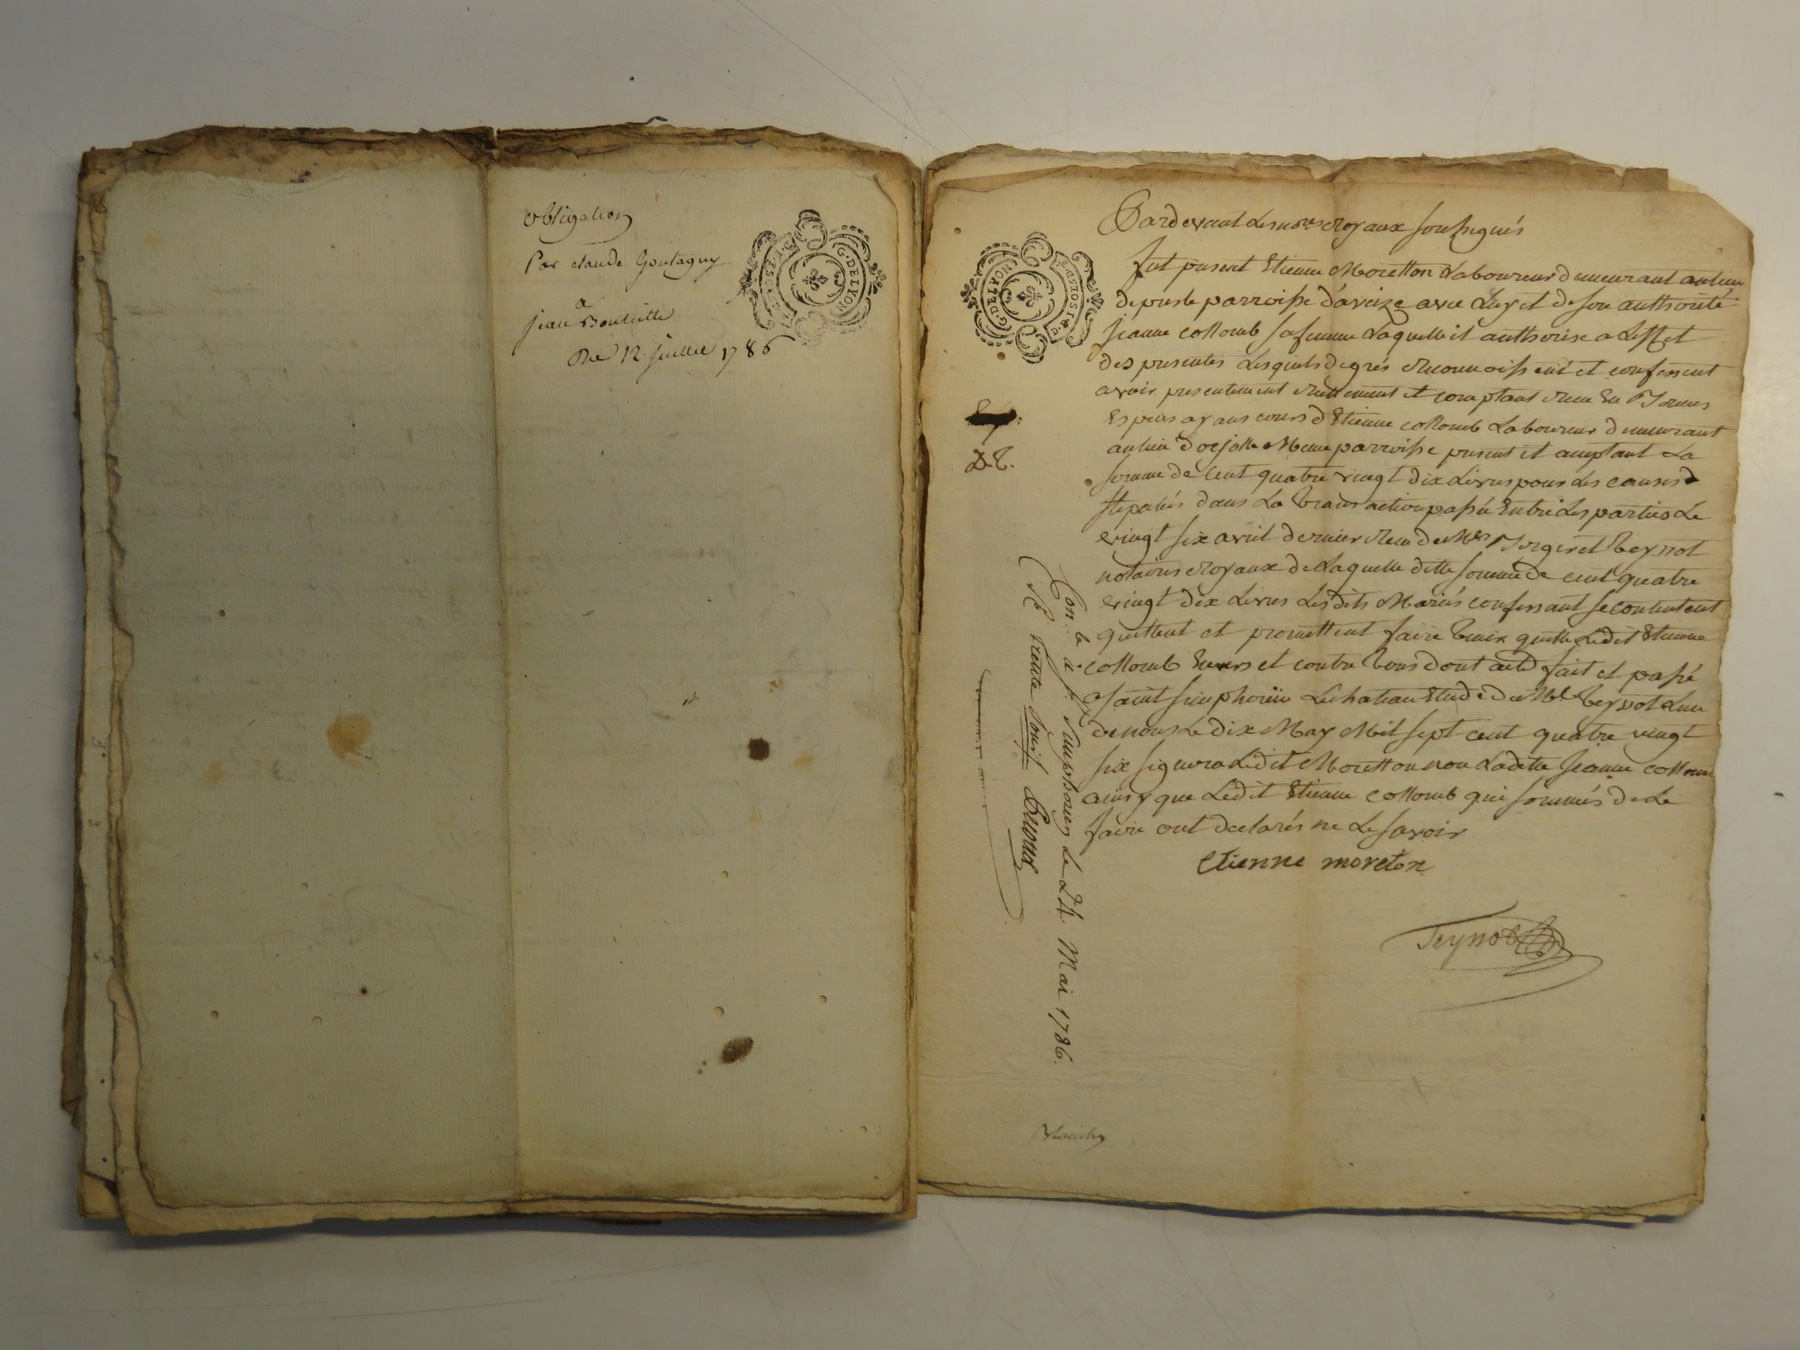 obligation
Par claude Goutagny
a
jean Bouteille
Du 12. juillet 1786
G. DE LYON
Pardevant les no.res royaux soussignés
fut present Etienne Moretton laboureur demeurant au lieu
de parroisse d'aveize avec luy et de son authorité
jeanne collomb sa femme laquelle il authorise a l'effet
des presentes lesquels de grés reconnoissent et confessent
avoir presentement reellement et comptant recu en bonnes
Especes ayans cours d'Etienne collomb laboureur demeurant
au lieu Meme parroisse present et acceptant la
somme de cent quatre vingt dix livres pour les causes
stipulés dans la transaction passée Entre les parties le
vingt six avril dernier recu de Mes et Teynot
notaires royaux de laquelle ditte somme de cent quatre
vingt dix livres lesdits Mariés confessant se contentent
quittent et promettent faire tenir quitte ledit Etienne
collomb Envers et contre tous dont acte fait et passé
a Saint Simphorien le chateau Etude de Me Teynot l'un
de nous le dix May Mil sept cent quatre vingt
six signera ledit Moretton non laditte jeanne collomb
ainsy que ledit Etienne collomb qui sommés de le
faire ont declarés ne le savoir
etienne moreton
Teynot
Con. lé a S. Simphorien le 24. Mai 1786.
R trente
G. DE LYON